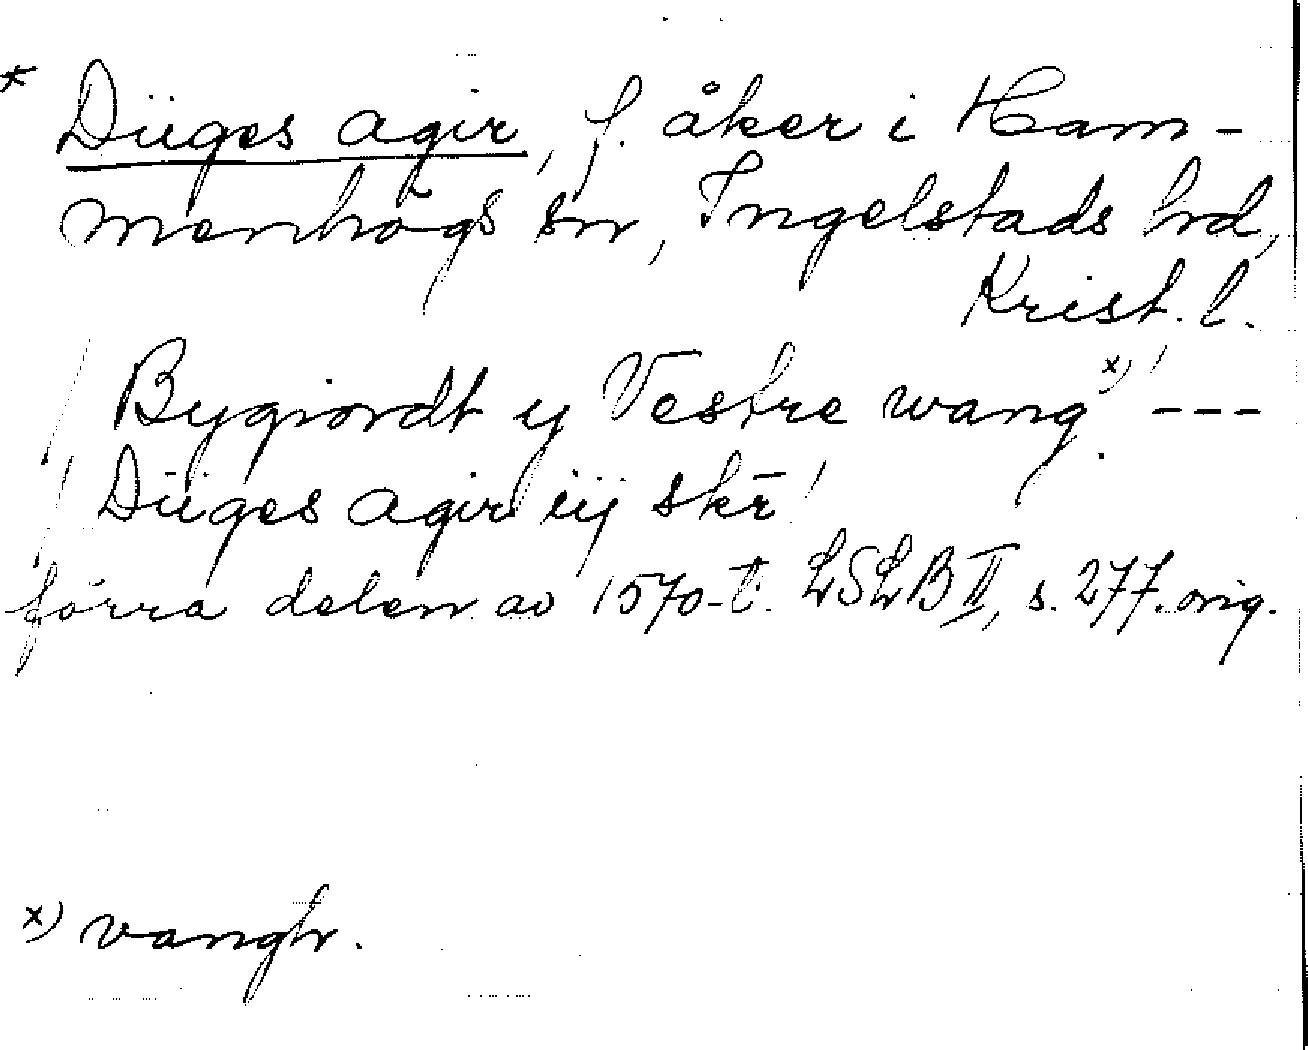 * Düges agir, f. åker i Ham-
menhögs sn, Ingelstads hd,
Krist. l.
/ Bygiordt ij Vestre wang x) / ---
/ Düges agir iij skr̄ /
förra delen av 1570-t. LSLB II, s. 277. orig.
x) vangh.